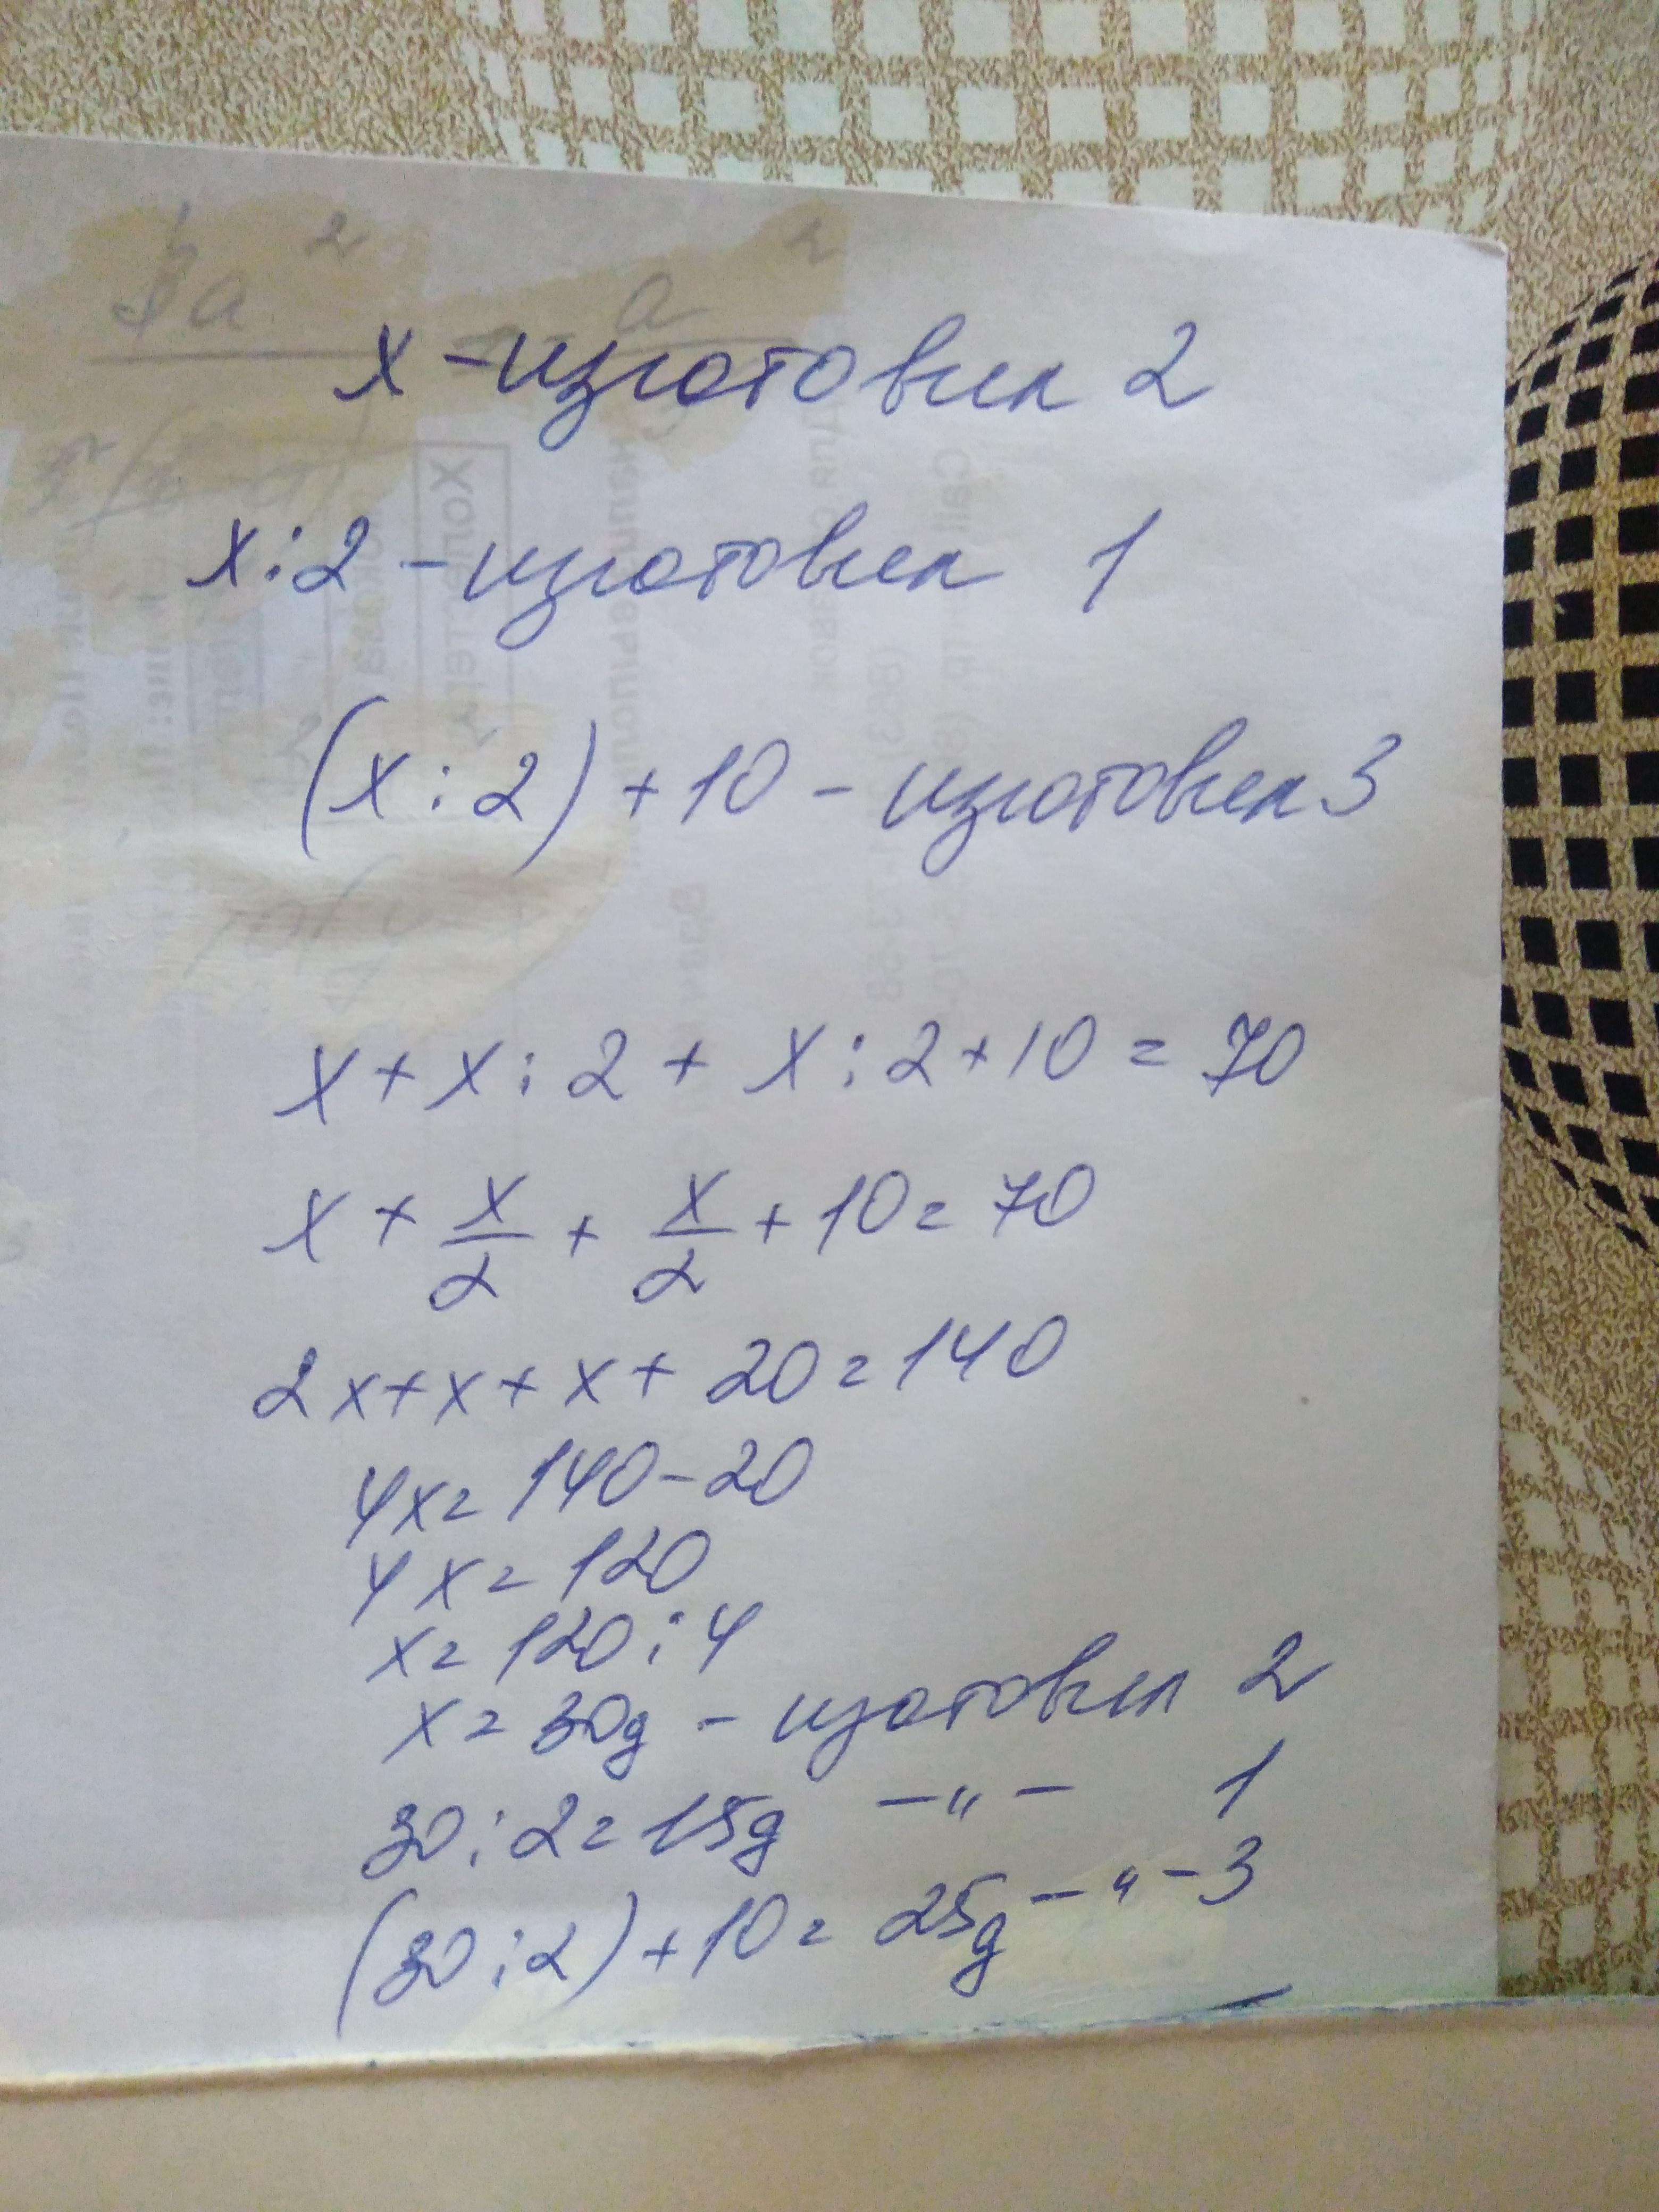 x – изготовил 2
x : 2 – изготовил 1
(x : 2) + 10 – изготовил 3
x + x : 2 + x : 2 + 10 = 70
x + x/2 + x/2 + 10 = 70
2x + x + x + 20 = 140
4x = 140 – 20
4x = 120
x = 120 : 4
x = 30g – изготовил 2
30 : 2 = 15g –"– 1
(30 : 2) + 10 = 25g –"– 3